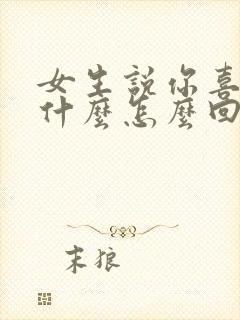 女生說你喜
什麼怎麼回
末狼